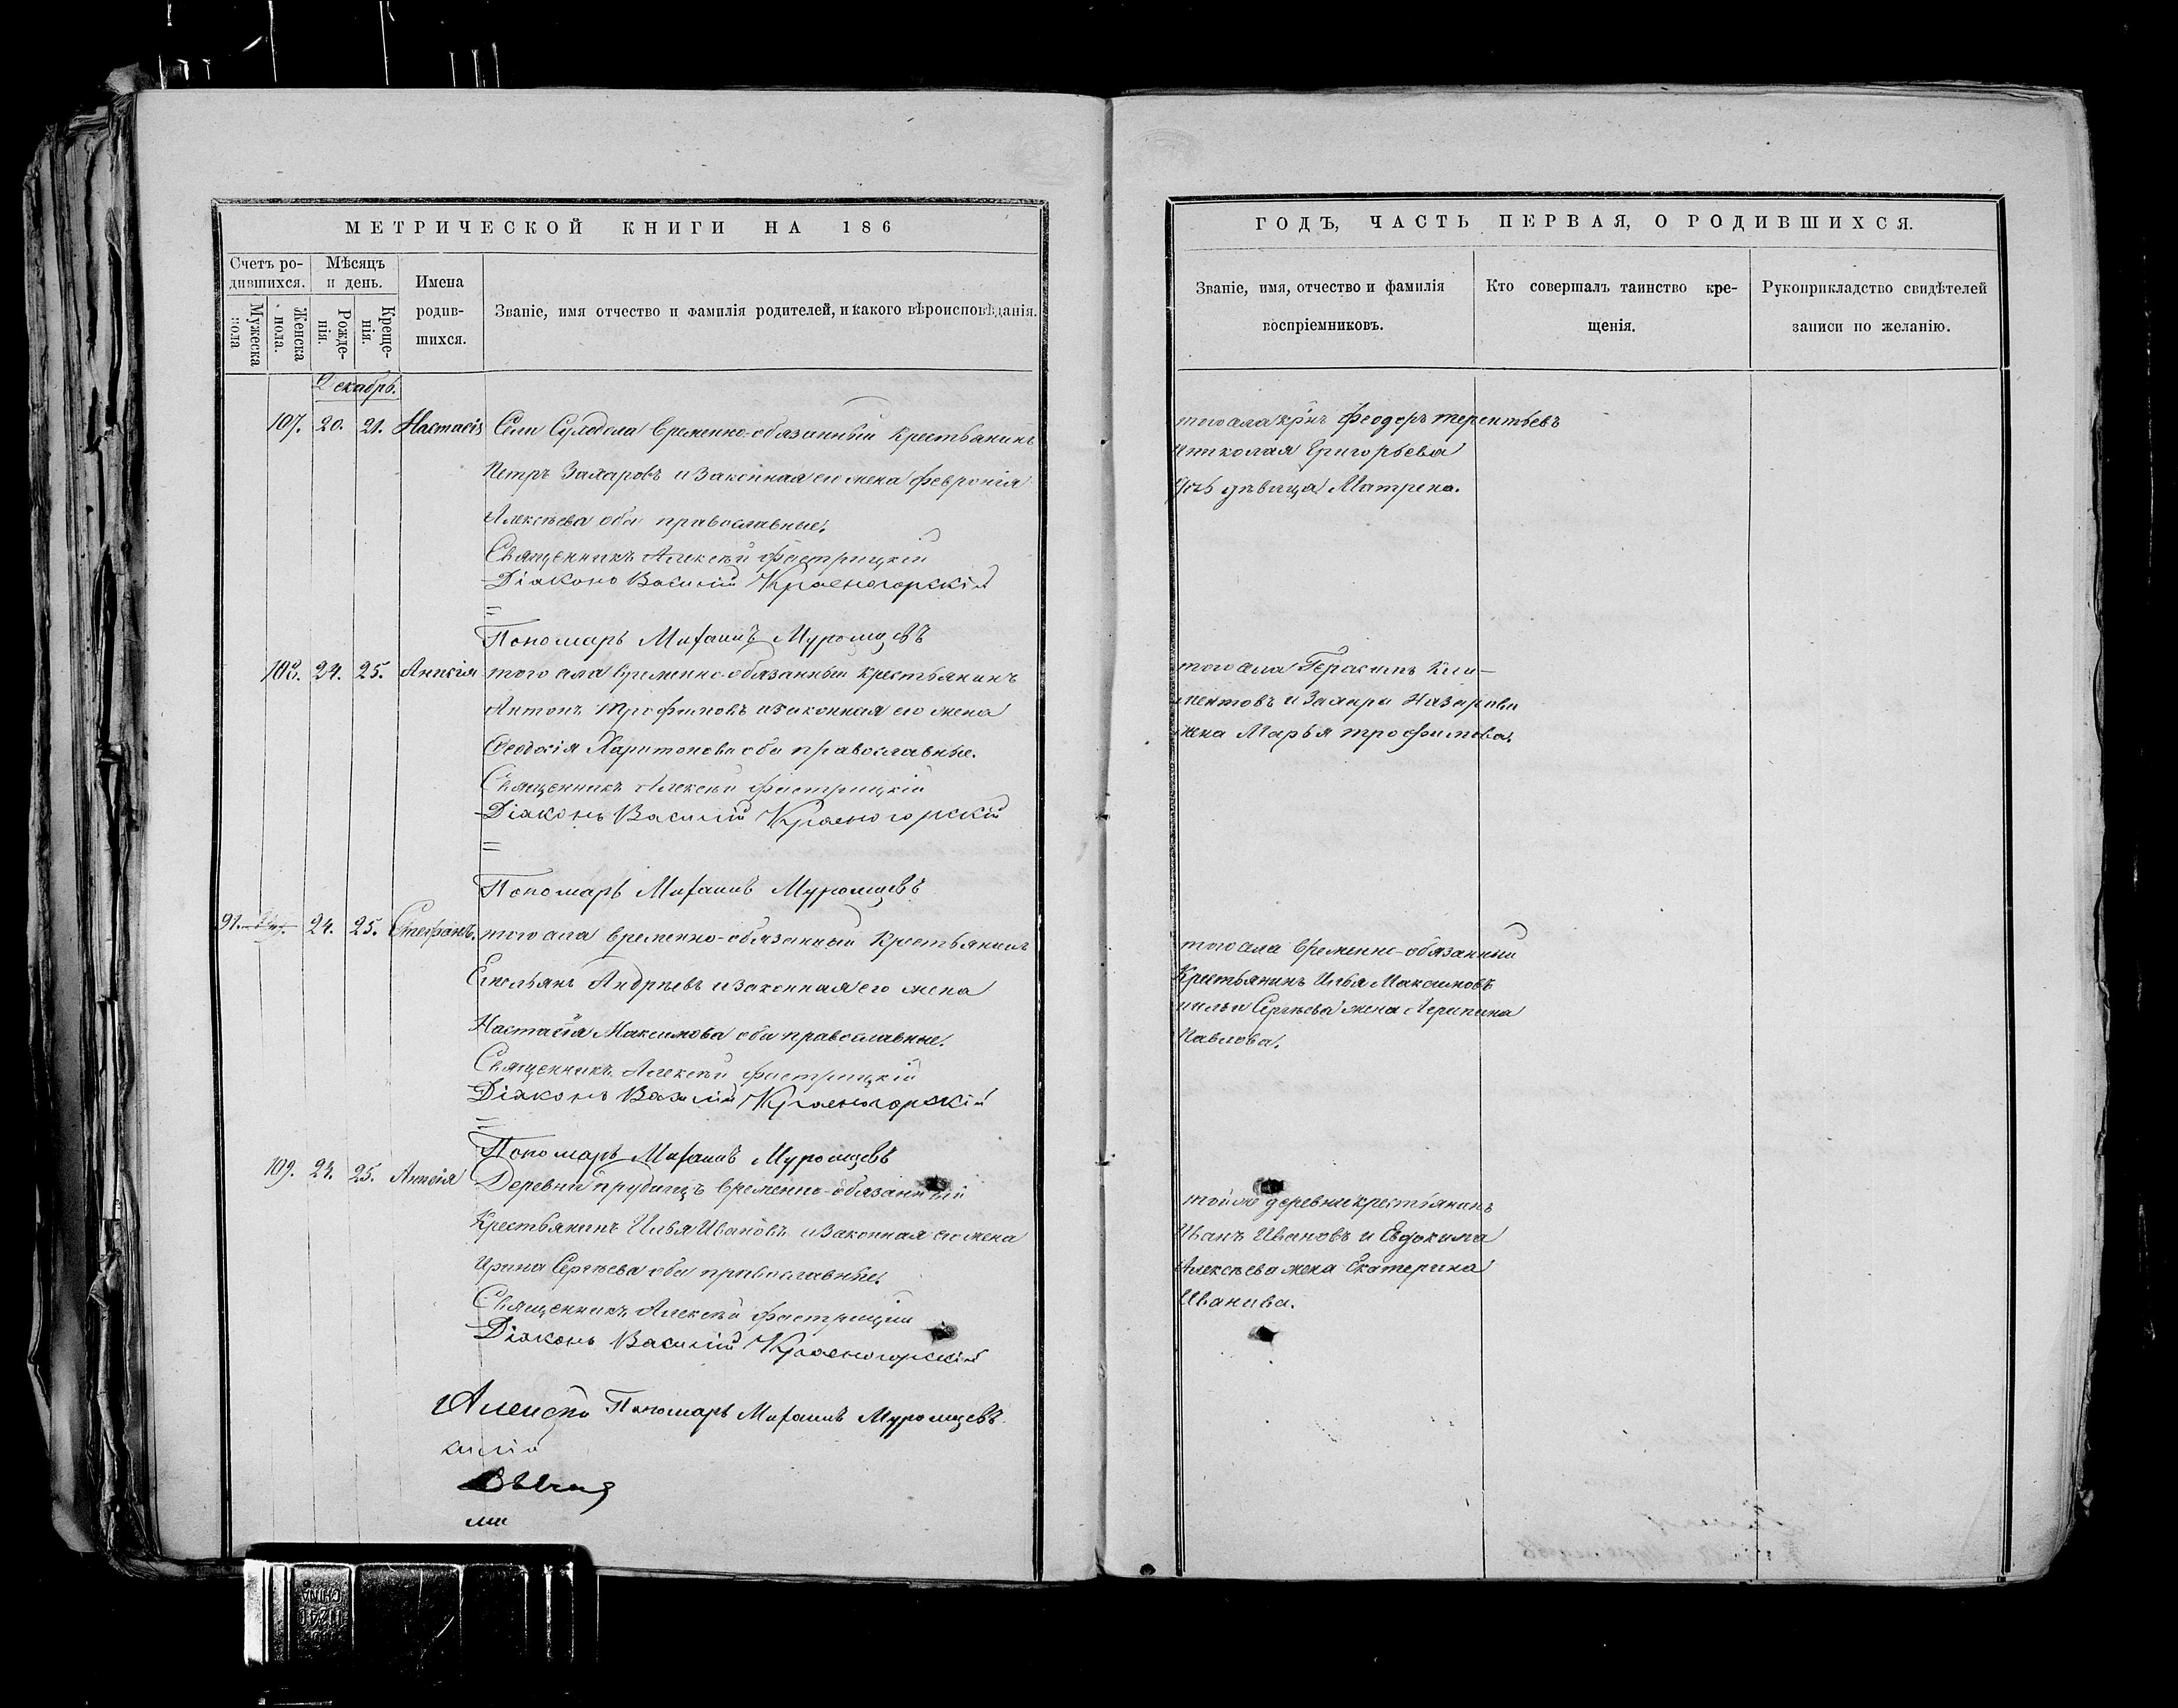 МЕТРИЧЕСКОЙ КНИГИ НА 186
Счетъ ро-
дившихся.
Мужеска пола
Женска пола.
Мѣсяцъ
и день.
Рожде-
нія.
Креще-
нія.
Имена
родив-
шихся.
Званіе, имя отчество и фамилія родителей, и какого вѣроисповѣданія.
Декабрь.
107. 20. 21. Настасія Села временно-обязанный крестьянинъ
Петръ Захаровъ и законная его жена Февронія
Алексѣева оба православные.
Священникъ Алексѣй
Діаконъ Василій Красногорскій
=
Пономарь Михаилъ Муромцевъ
108. 24. 25. Анисія того села временно-обязанный крестьянинъ
Антонъ Трофимовъ и законная его жена
Феодосія Харитонова оба православные.
Священникъ Алексѣй
Діаконъ Василій Красногорскій
=
Пономарь Михаилъ Муромцевъ
91. 24. 25. Стефанъ. того села временно-обязанный крестьянинъ
Емельянъ Андреевъ и законная его жена
Настасія Максимова оба православные.
Священникъ Алексѣй
Діаконъ Василій Красногорскій
=
Пономарь Михаилъ Муромцевъ
109. 24. 25. Анисія Деревни Прудищъ временно-обязанный
крестьянинъ Илья Ивановъ и законная его жена
Ирина Сергѣева оба православные.
Священникъ Алексѣй
Діаконъ Василій Красногорскій
Пономарь Михаилъ Муромцевъ
ГОДЪ, ЧАСТЬ ПЕРВАЯ, О РОДИВШИХСЯ.
Званіе, имя, отчество и фамилія
воспріемниковъ.
Кто совершалъ таинство кре-
щенія.
Рукоприкладство свидѣтелей
записи по желанію.
того села кр̃нъ Феодоръ Терентьевъ
и николая Григорьева
дочь дѣвица Матрена.
того села Герасимъ Кли-
ментовъ и Захара Назарова
жена Марья Трофимова.
того села временно-обязанный
Крестьянинъ Илья Максимовъ
и ильи Сергѣева жена Агрипина
Павлова.
той же деревни крестьянинъ
Иванъ Ивановъ и Евдокима
Алексѣева жена Екатерина
Иванова.